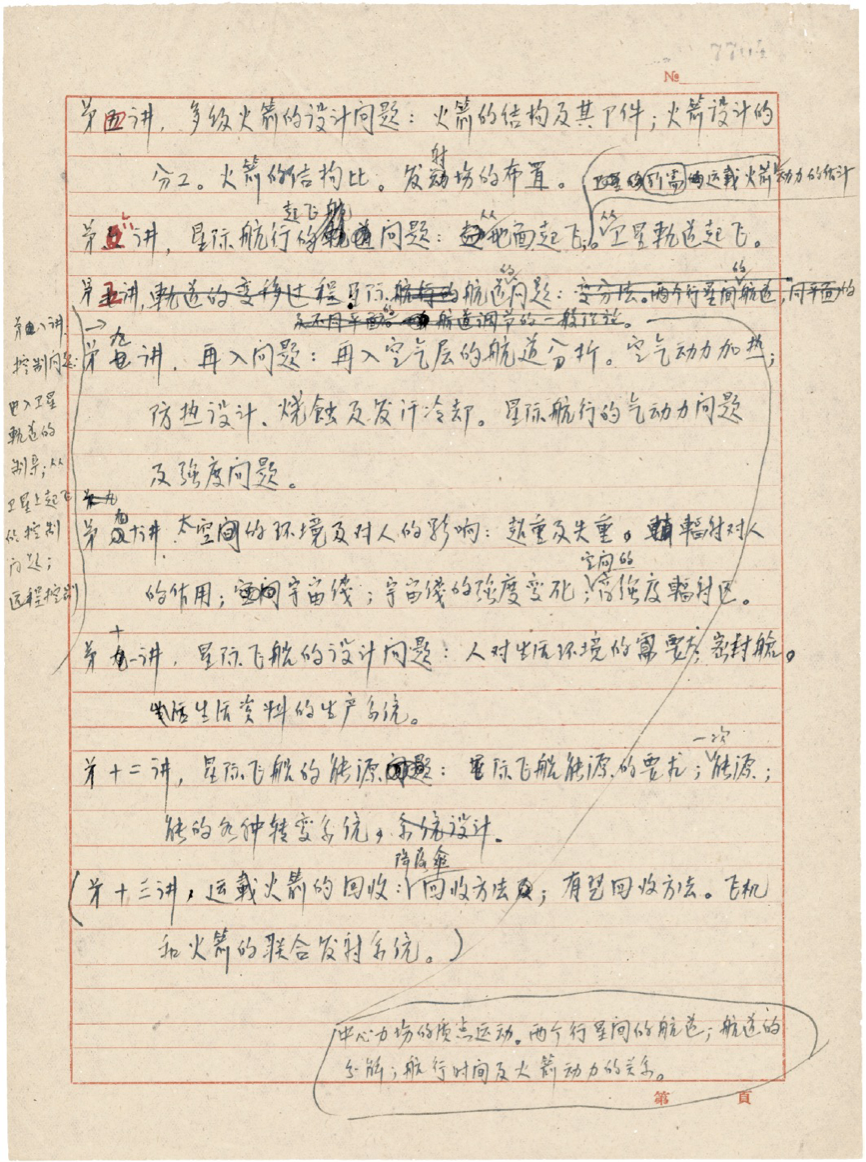 7711页
№
第四讲,多级火箭的设计问题:火箭的结构及其下件;火箭设计的
分工。火箭的结构比。发射场的布置。
卫星的运载火箭动力的估计
第五讲,星际航行的起飞航道问题:从地面起飞。从卫星軌道起飞。
第五讲,軌道的变移过程 星际航行的航道的问题:变分法。两个行星间的航道,同平面的
及不同平面的 航道调节的一般理论。
第九讲,再入问题:再入空气层的航道分析。空气动力加热;
防热设计、烧蚀及发汗冷却。星际航行的气动力问题
及强度问题。
第八讲
控制问题:
进入卫星
軌道的
制导;从
卫星上起飞
的控制
问题;
远程控制
第九
第十讲,太空间的环境及对人的影响:超重及失重。輻射对人
的作用;宇宙线;宇宙线的强度变化;空间的高强度輻射区。
第十一讲,星际飞船的设计问题:人对生活环境的需要;密封舱。
生活资料的生产系统。
第十二讲,星际飞船的能源问题:星际飞船能源的要求;一次能源;
能的各种转变系统,系统设计。
(第十三讲,运载火箭的回收:降落伞回收方法;有翼回收方法。飞机
和火箭的联合发射系统。)
中心力场的质点运动。两个行星间的航道;航道的
分析;航行时间及火箭动力的关系。
第 頁